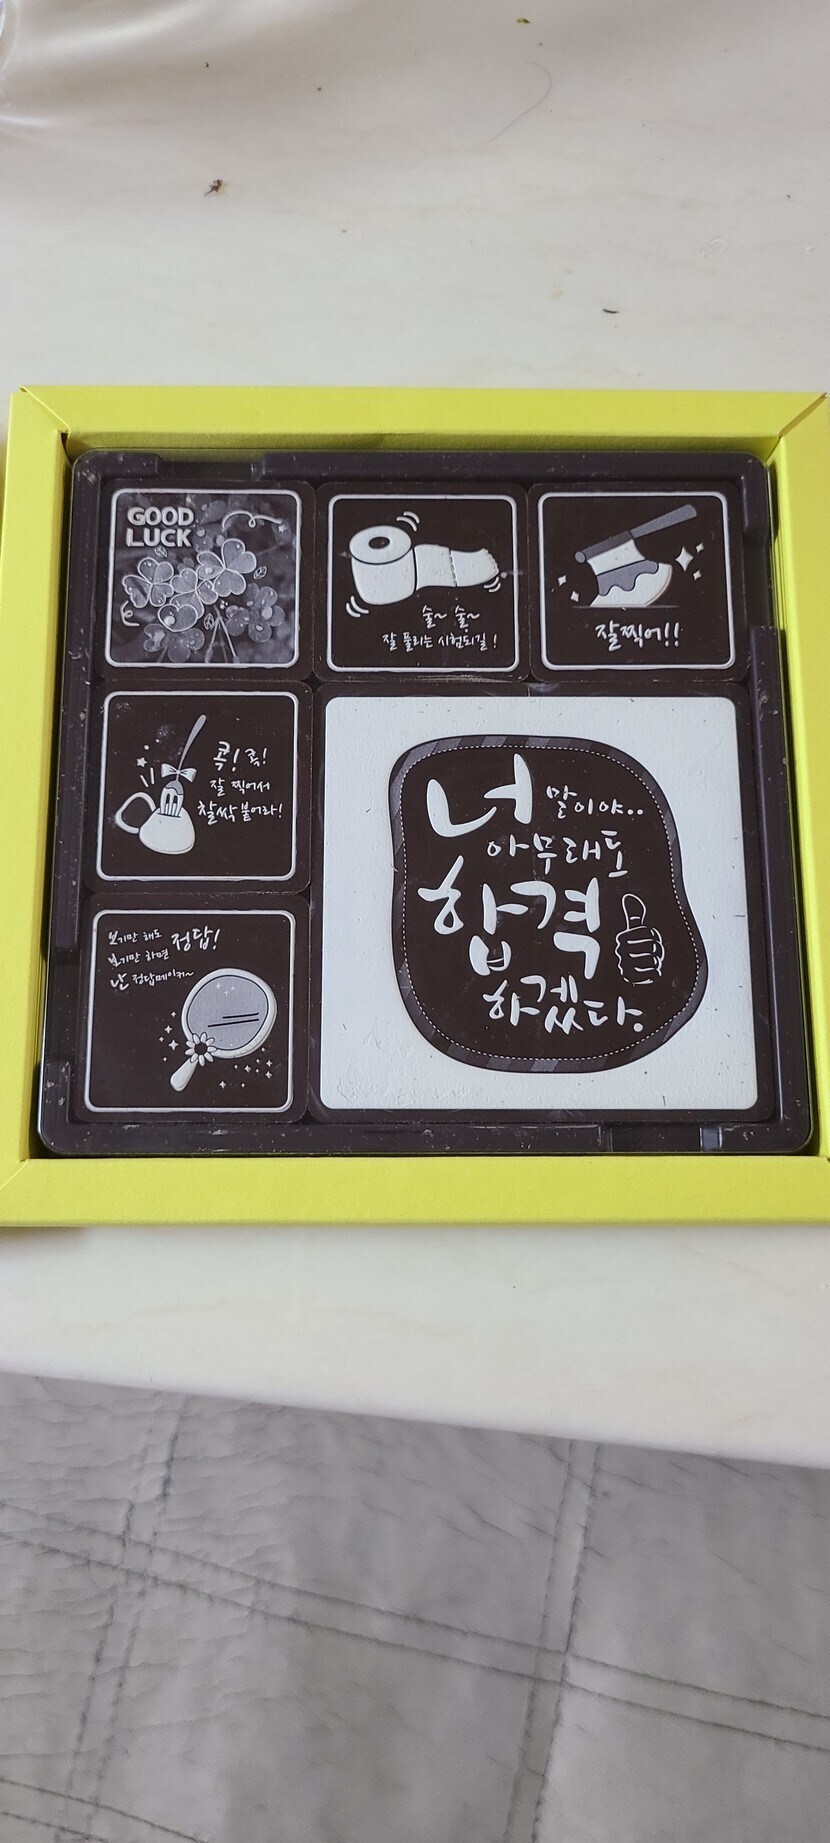 GOOD
LUCK
술~ 술~
잘 풀리는 시험되길!
잘찍어!!
콕! 콕!
잘 찍어서
찰싹 붙어라!
보기만 해도 정답!
보기만 하면
난 정답메이커~
너 말이야..
아무래도
합격
하겠다.